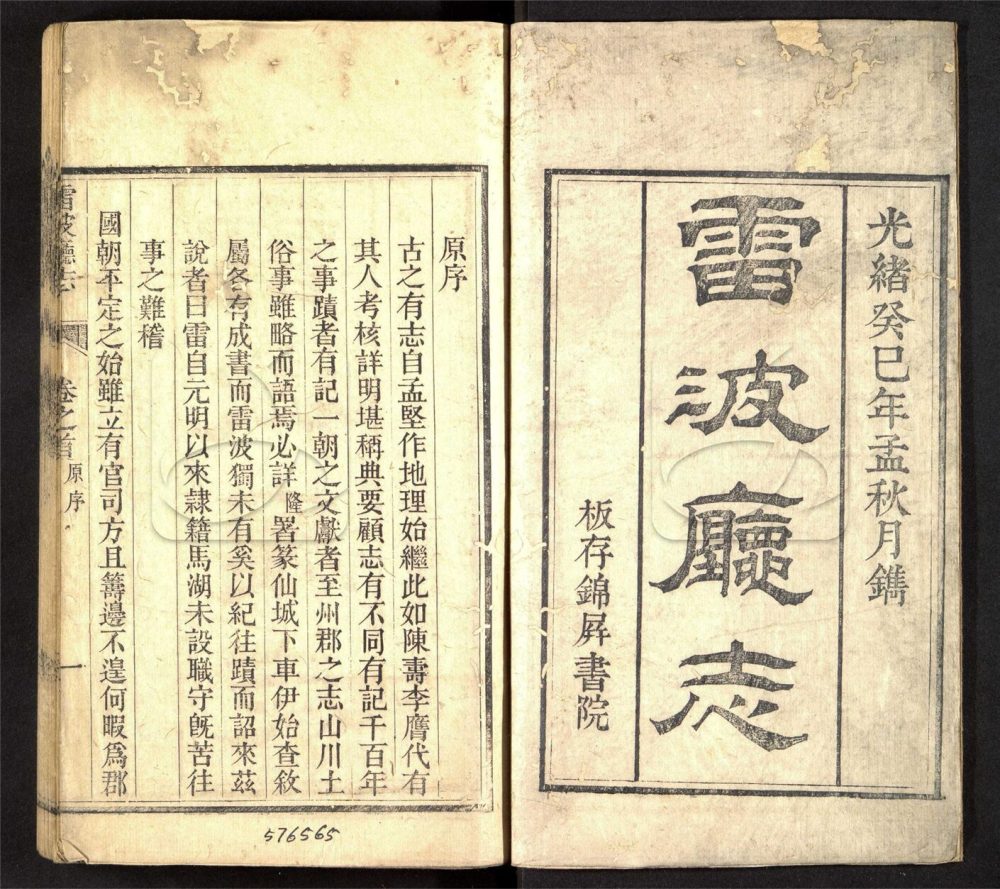 光緒癸巳年孟秋月鐫
雷波廳志
板存錦屏書院
原序
古之有志自孟堅作地理始繼此如陳壽李膺代有
其人考核詳明堪稱典要顧志有不同有記千百年
之事蹟者有記一朝之文獻者至州郡之志山川土
俗事雖略而語焉必詳隆署篆仙城下車伊始查敘
屬各有成書而雷波獨未有奚以紀往蹟而詔來茲
說者曰雷自元明以來隸籍馬湖未設職守旣苦往
事之難稽
國朝平定之始雖立有官司方且籌邊不遑何暇爲郡
雷波廳志 卷之首 原序 一
576565